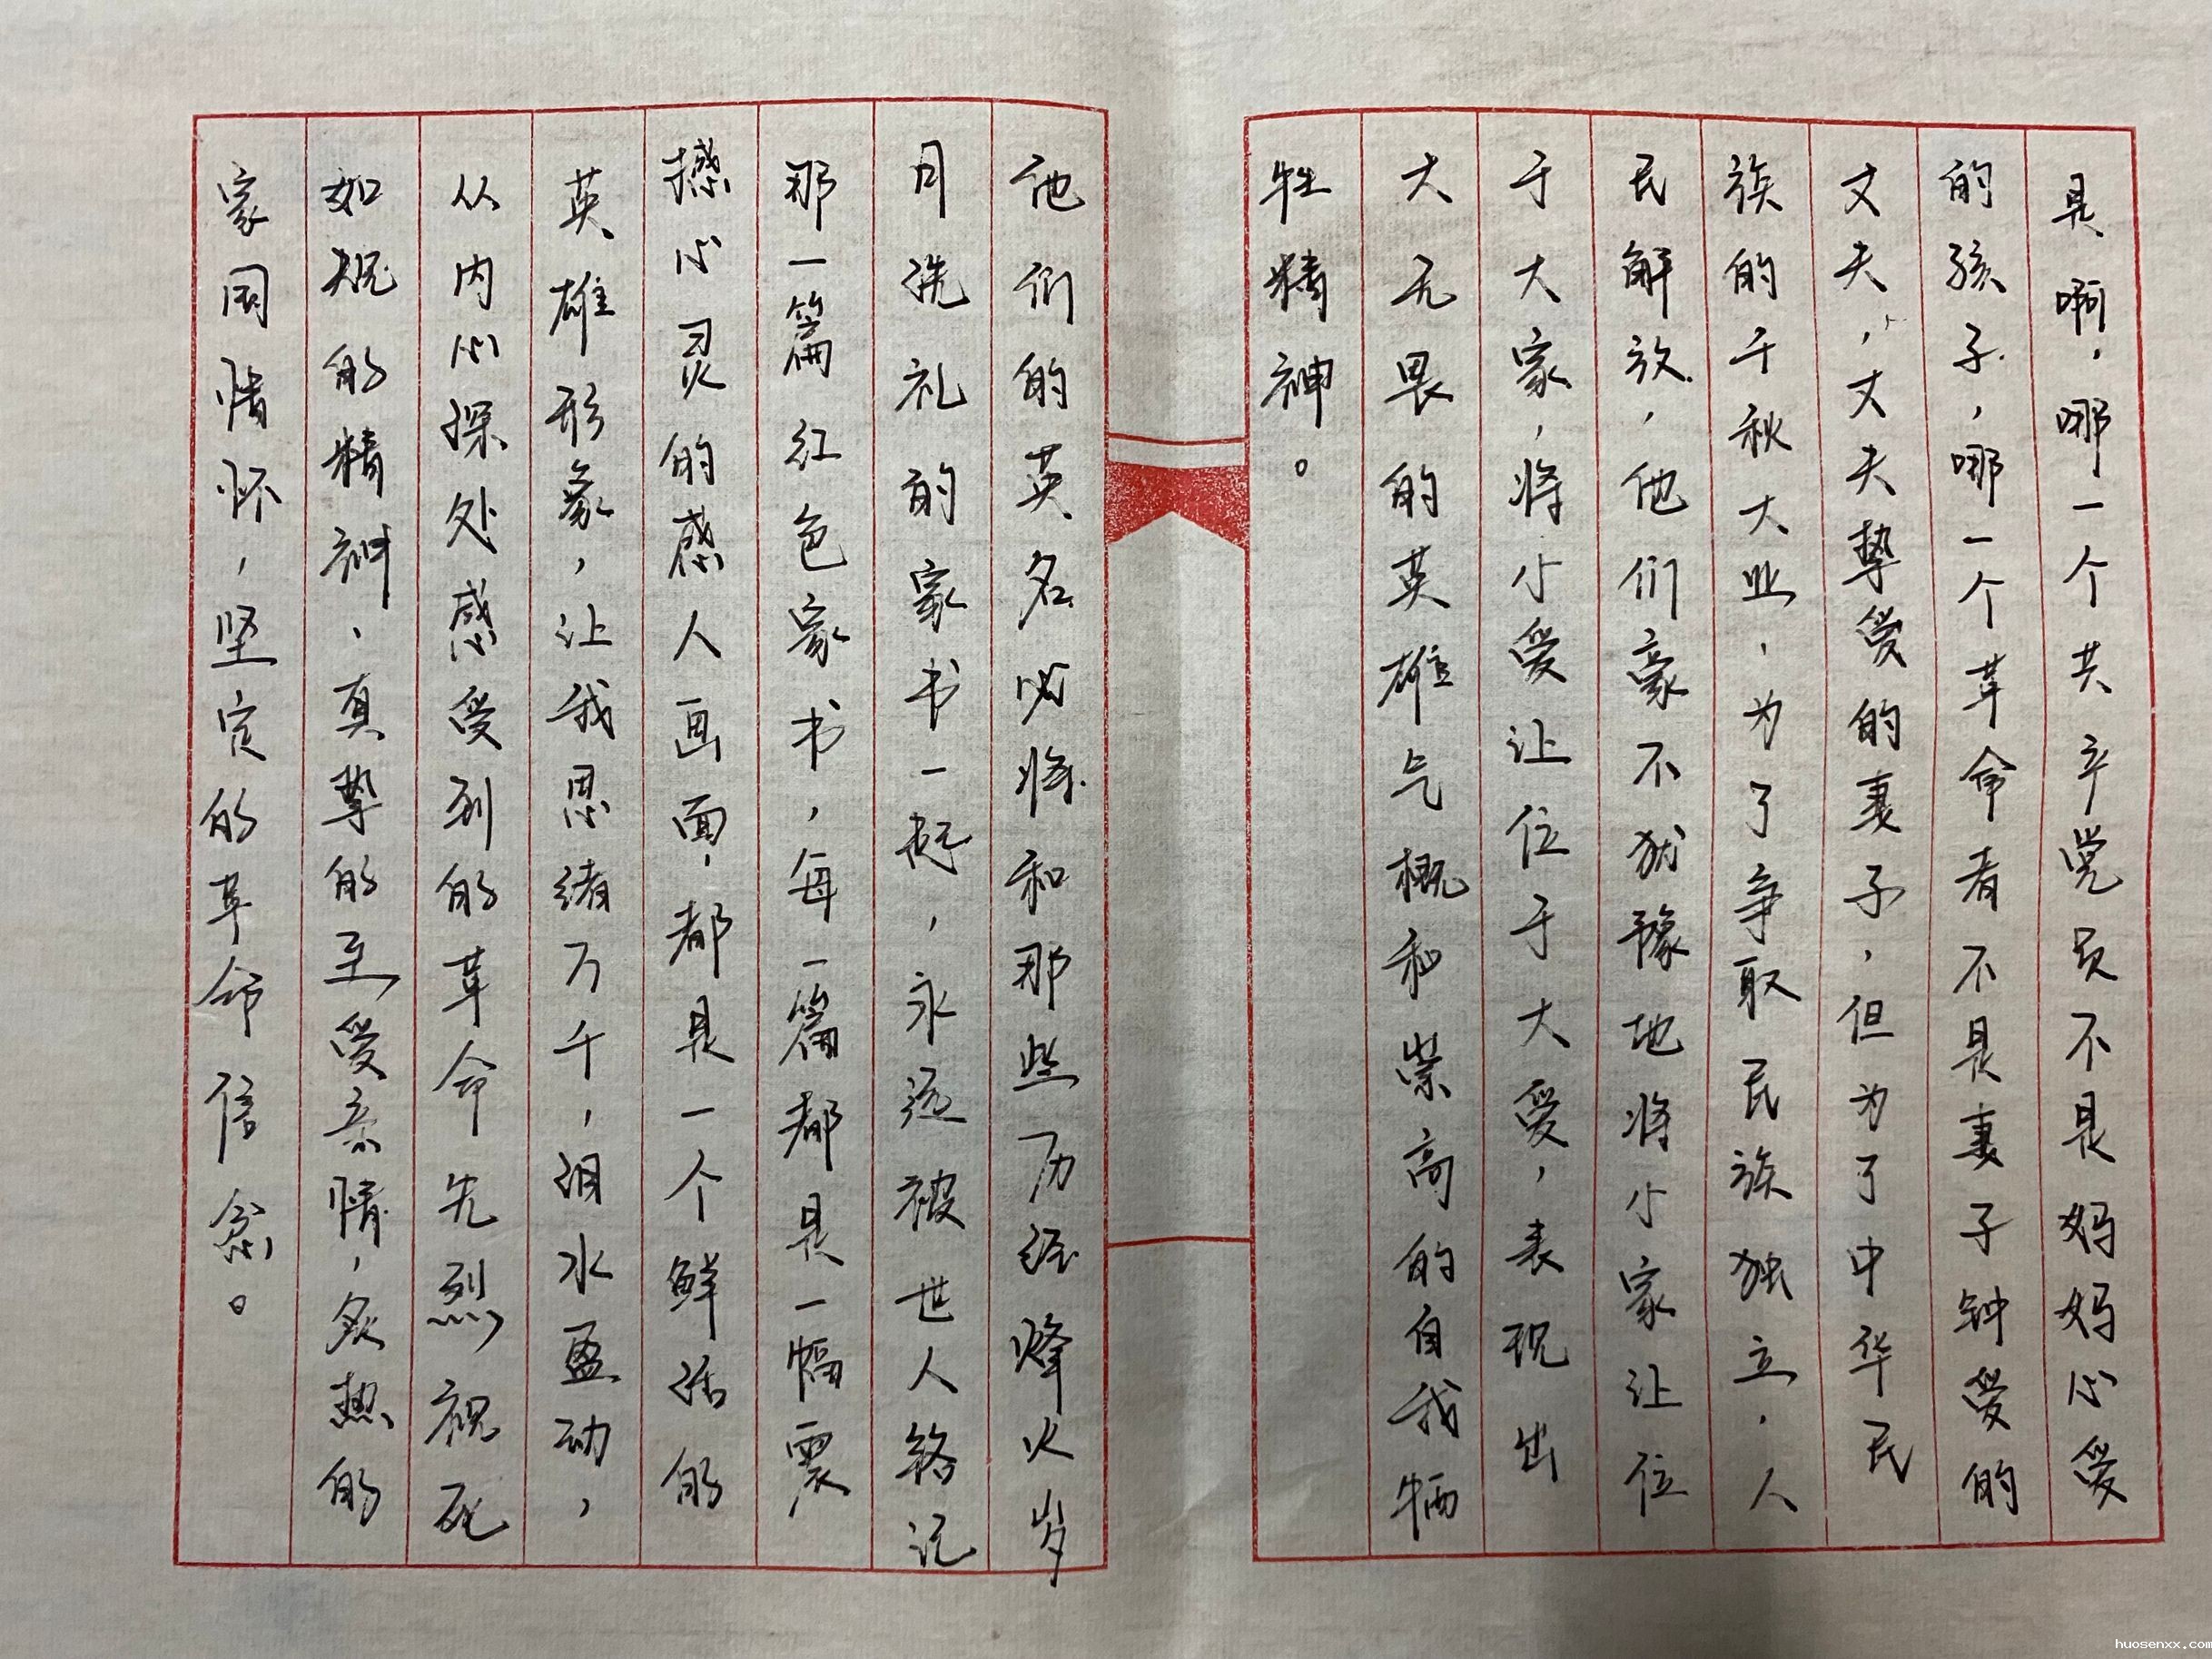 是啊，哪一个共产党员不是妈妈心爱
的孩子，哪一个革命者不是妻子钟爱的
丈夫，丈夫挚爱的妻子，但为了中华民
族的千秋大业，为了争取民族独立，人
民解放，他们豪不犹豫地将小家让位
于大家，将小爱让位于大爱，表现出
大无畏的英雄气概和崇高的自我牺
牲精神。
他们的英名必将和那些历经烽火岁
月洗礼的家书一起，永远被世人铭记
那一篇红色家书，每一篇都是一幅震
撼心灵的感人画面，都是一个鲜活的
英雄形象，让我思绪万千，泪水盈动，
从内心深处感受到的革命先烈视死
如归的精神、真挚的至爱亲情，炙热的
家国情怀，坚定的革命信念。
huosenxx.com